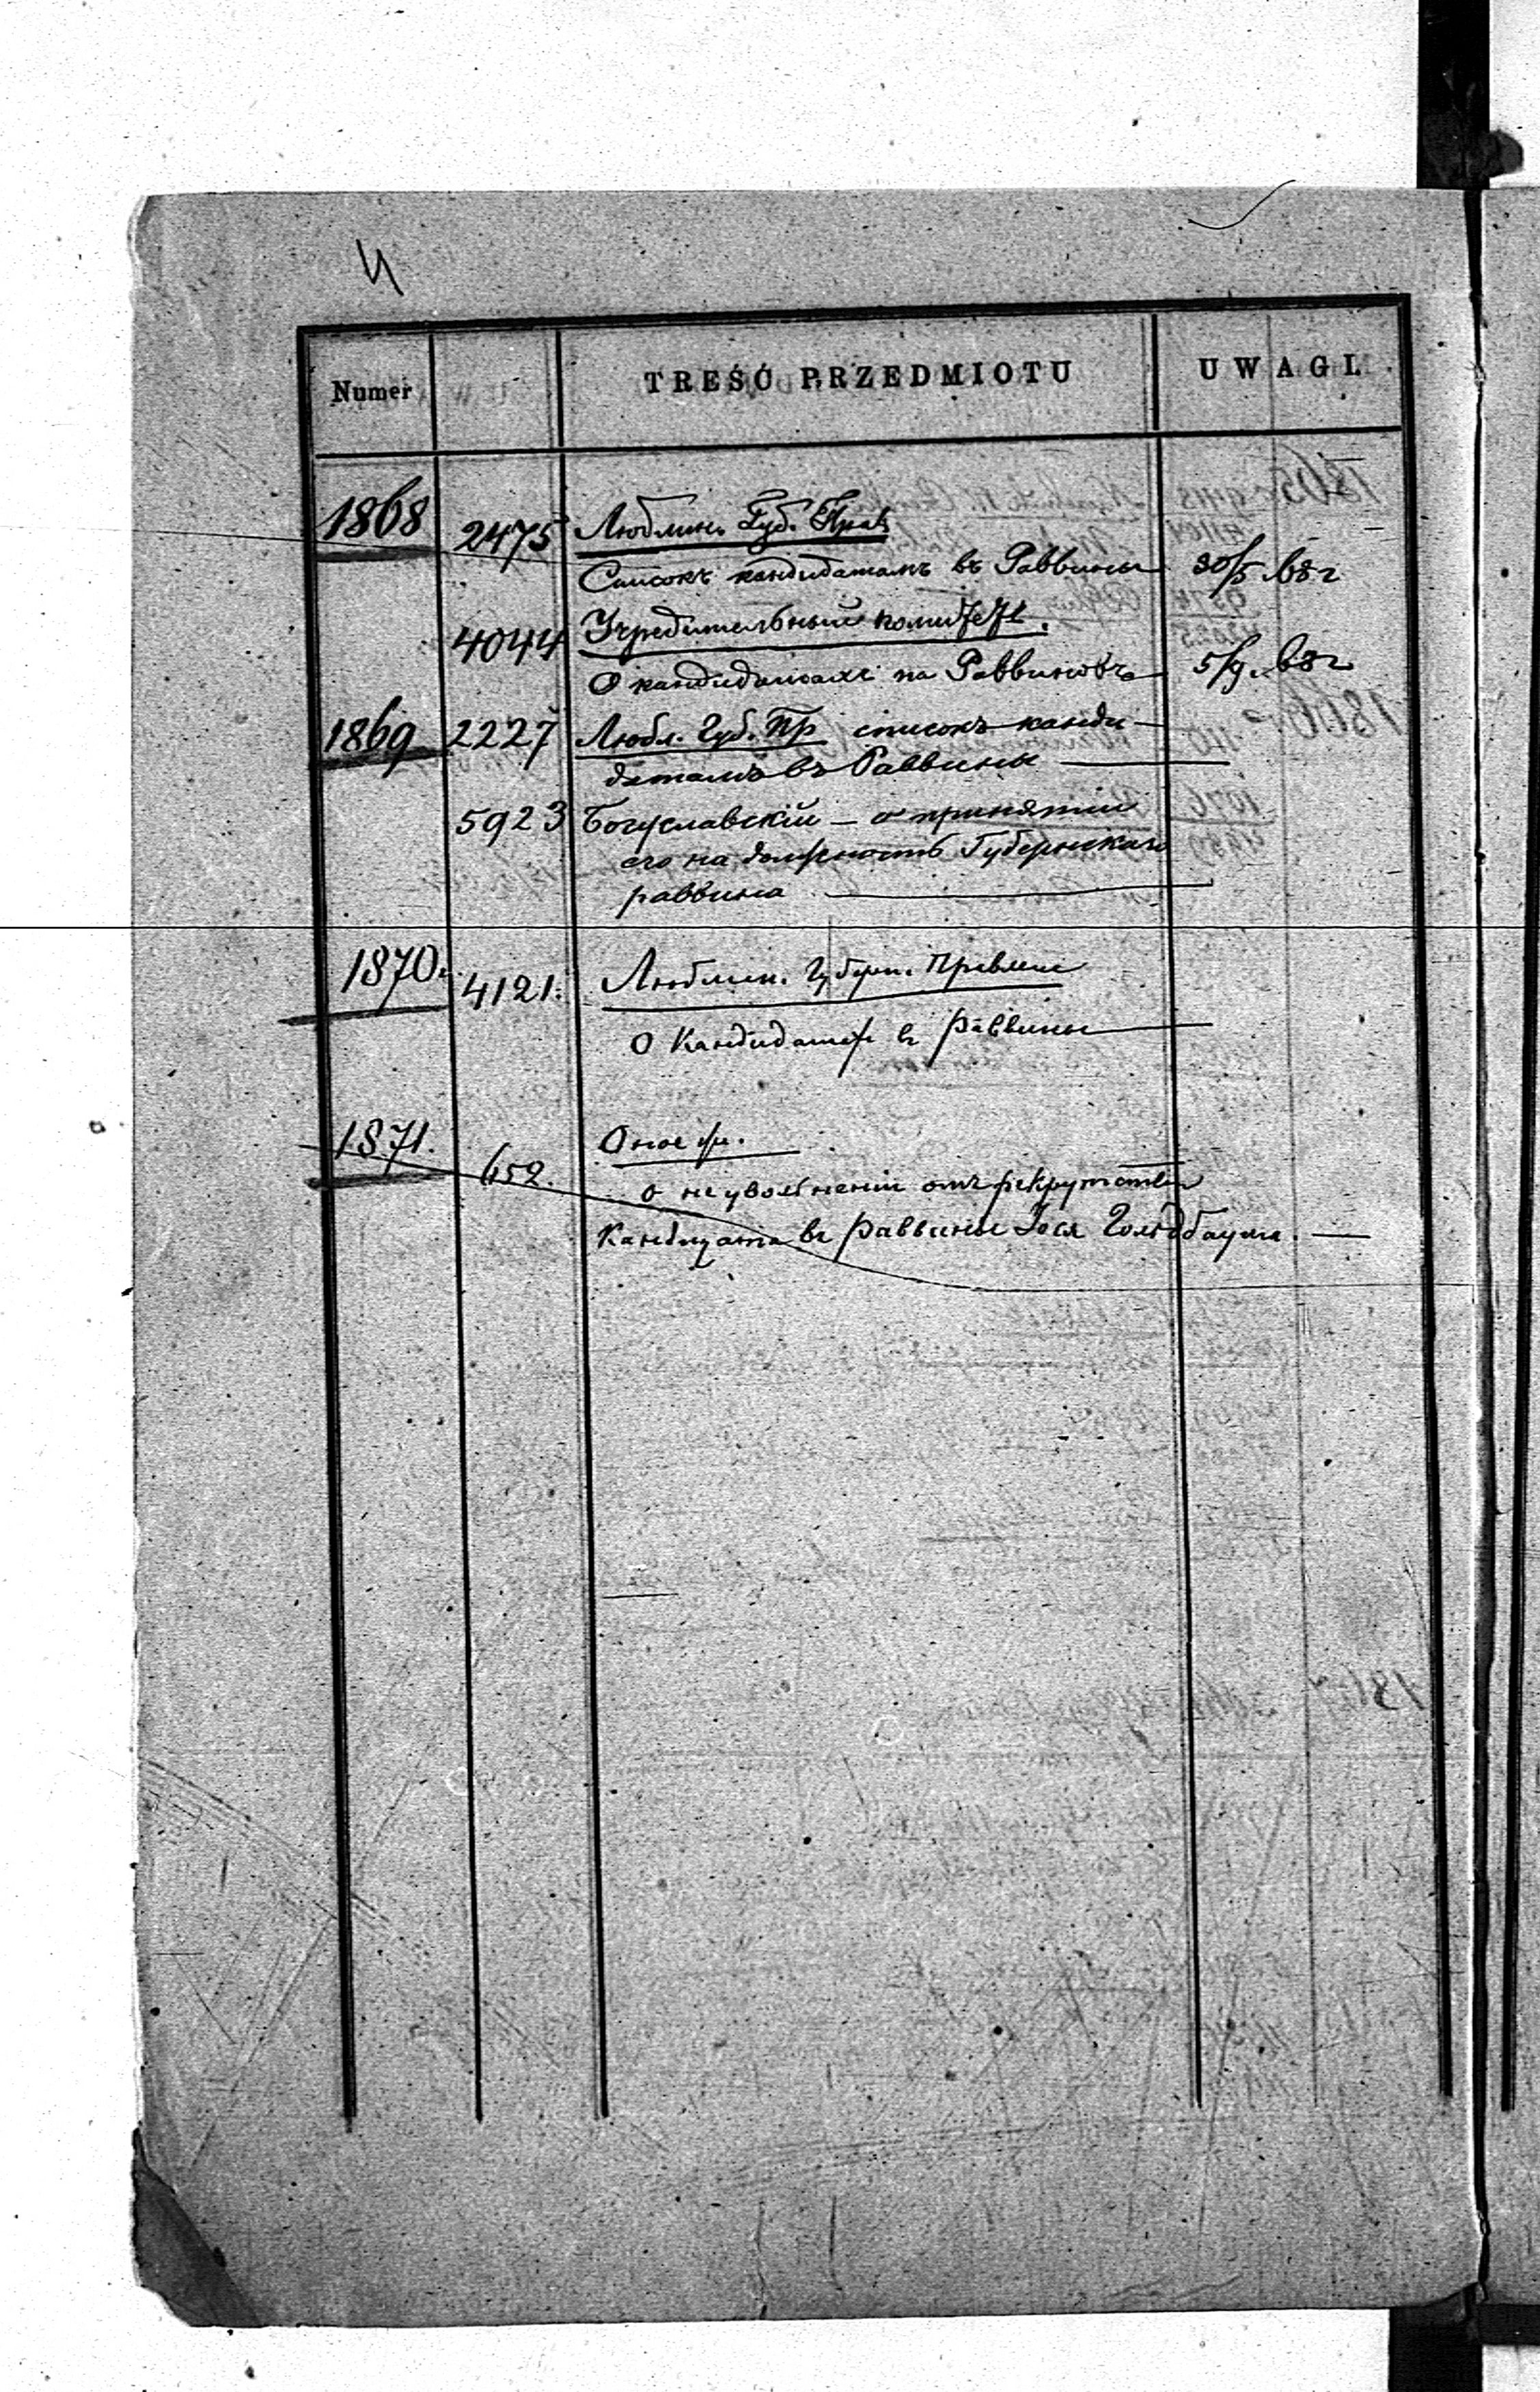 4
Numer TREŚĆ PRZEDMIOTU UWAGI.
1868 2475 Люблин. Губ. Прав.
Списокъ кандидатамъ въ Раввины 30/5 68 г
4044 Учредительный комитетъ.
О кандидатахъ на Раввиновъ 5/9. 68 г
1869 2227 Любл. Губ. Пр списокъ канди-
датамъ въ Раввины
5923 Богуславскій – о принятіи
его на должность Губернскаго
раввина
1870. 4121. Люблин. Губерн. Правлен
О Кандидатах в Раввины
1871. 652. Оное же.
о неувольненіи отъ рекрутства
Кандидата въ раввины Іося Гольдбаума. —